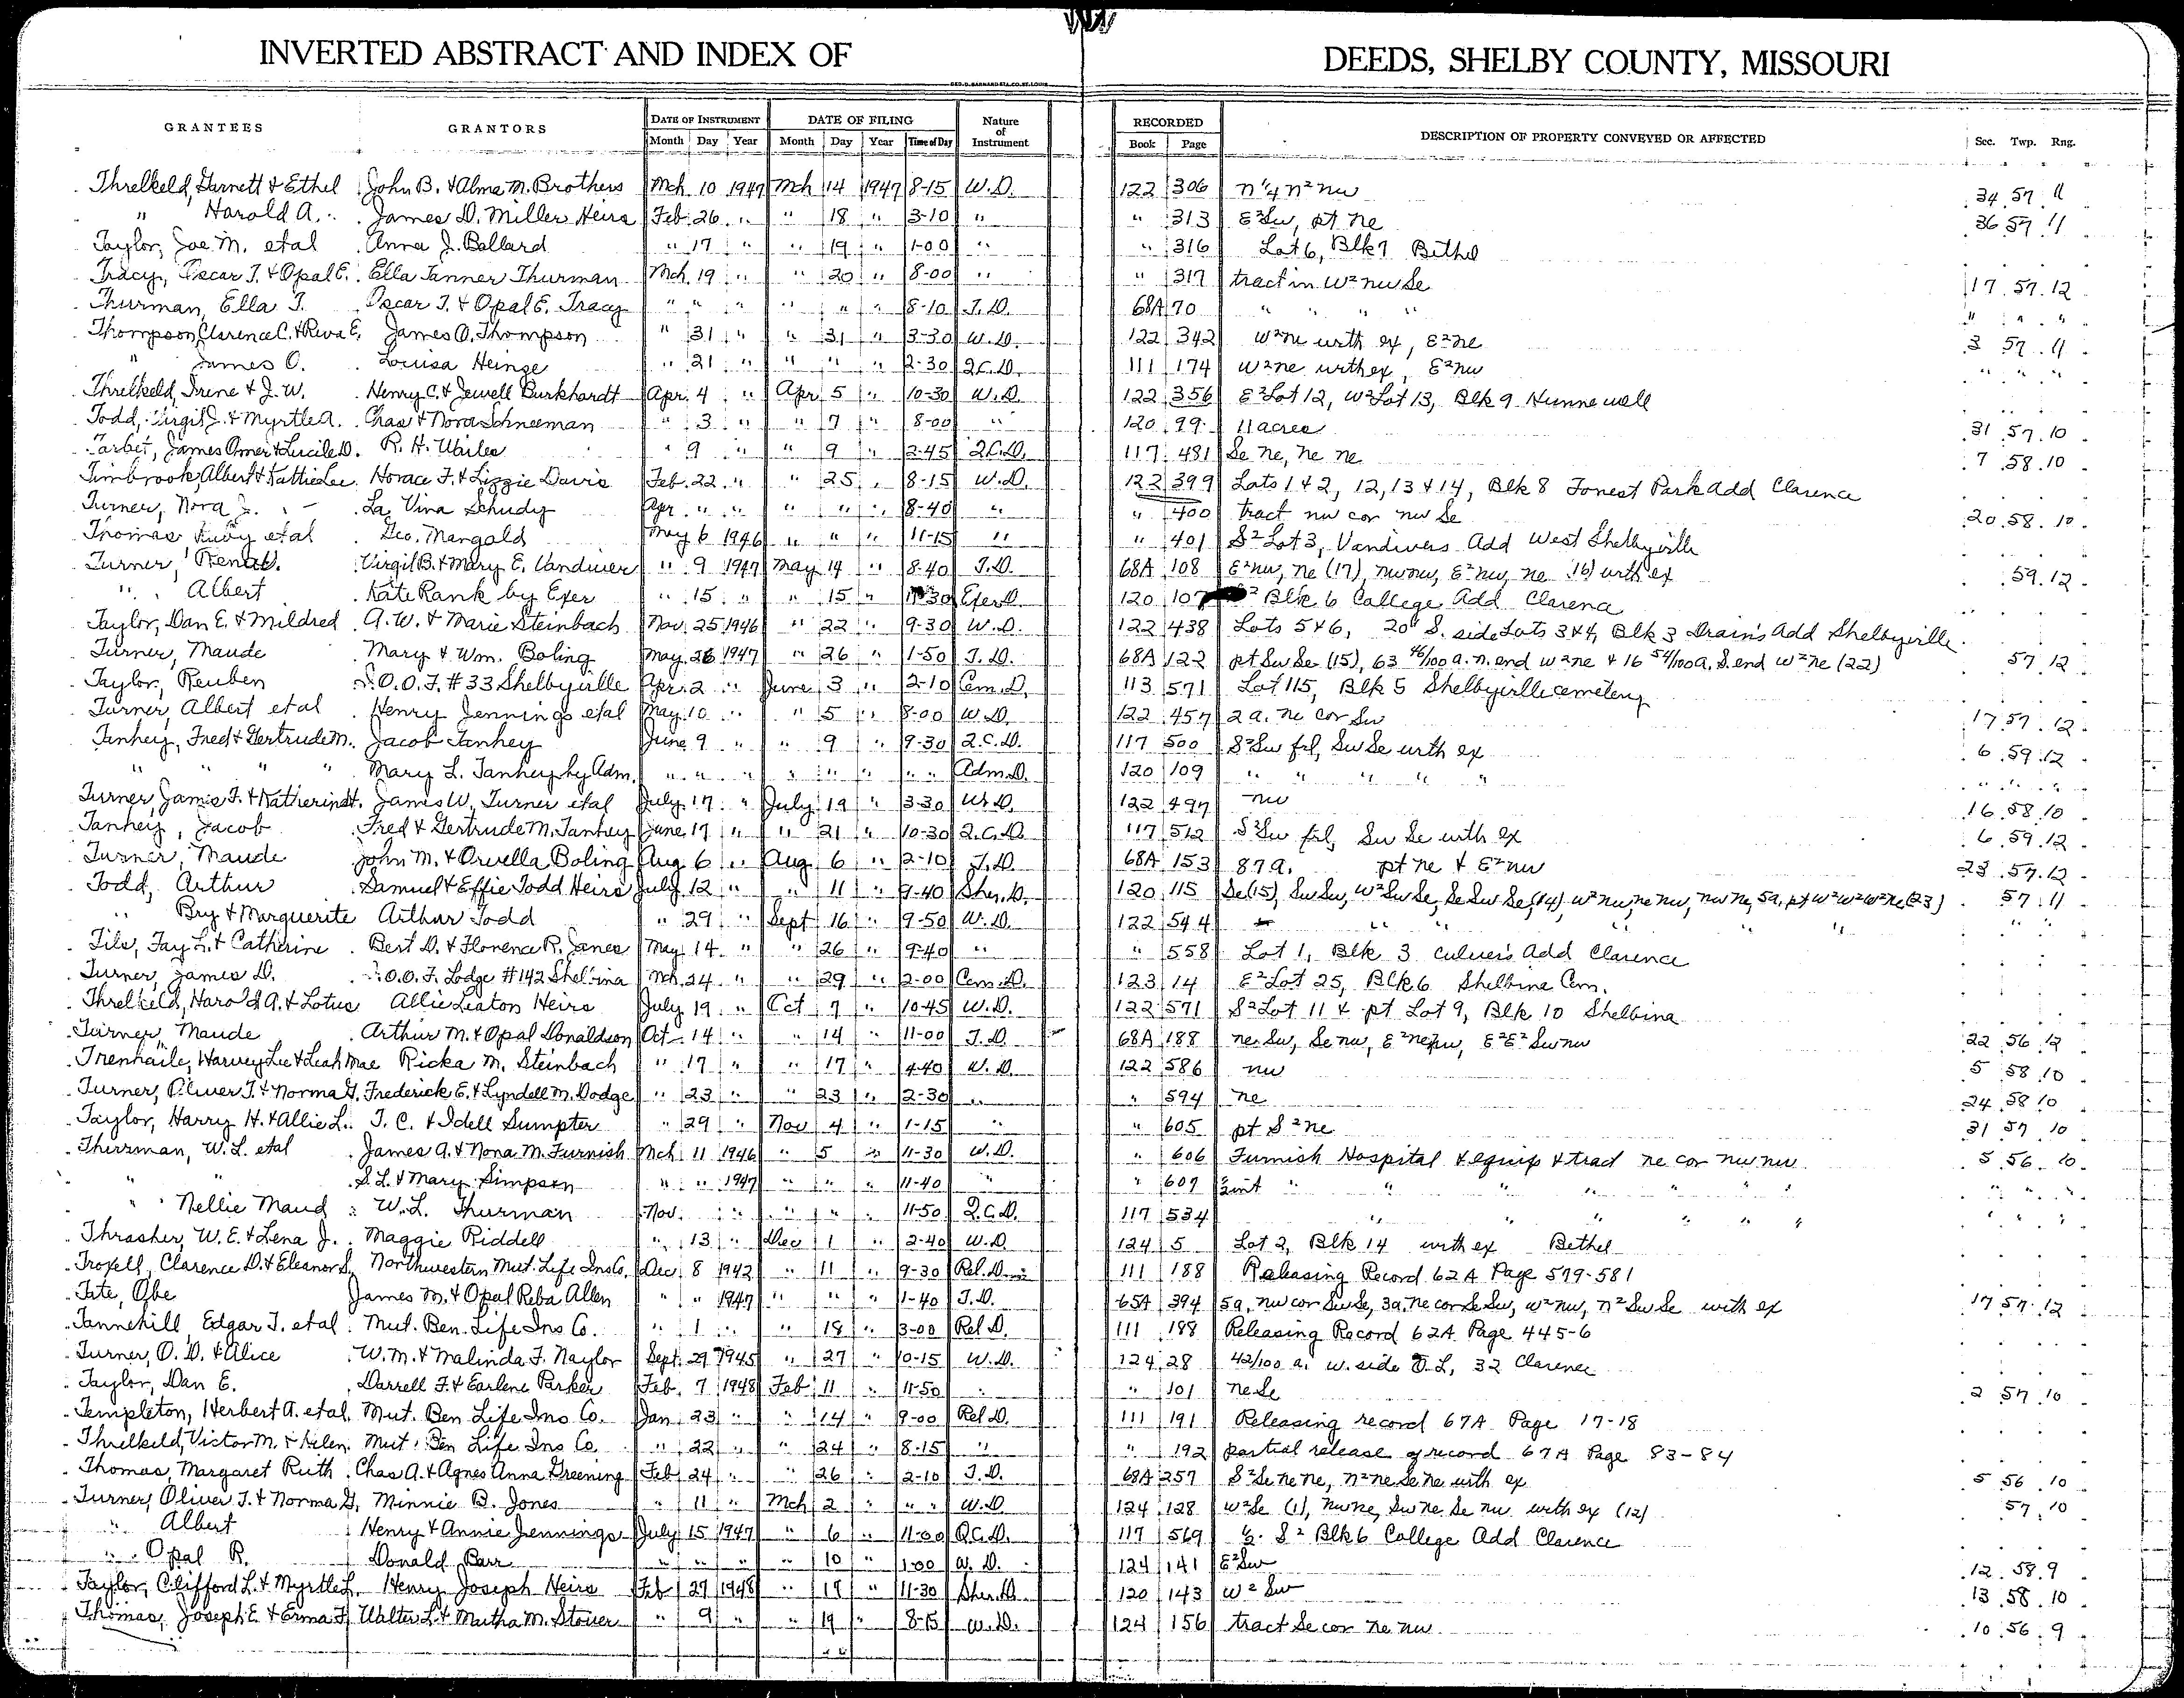 INVERTED ABSTRACT AND INDEX OF DEEDS, SHELBY COUNTY, MISSOURI
GRANTEES GRANTORS DATE OF INSTRUMENT DATE OF FILING Nature of Instrument RECORDED DESCRIPTION OF PROPERTY CONVEYED OR AFFECTED Sec. Twp. Rng.
Month Day Year Month Day Year Time of Day Book Page
Threlkeld, Garnett & Ethel John B. & Alma M. Brothers Mch 10 1947 Mch 14 1947 8-15 W.D. 122 306 n 1/4 n² nw 34 57 11
" Harold A. James D. Miller Heirs Feb 26 " " 18 " 3-10 " " 313 E² Sw, pt ne 36 57 11
Taylor, Joe M. etal Anna J. Ballard " 17 " " 19 " 1-00 " " 316 Lot 6, Blk 7 Bethel
Tracy, Oscar T. & Opal E. Ella Tanner Thurman Mch 19 " " 20 " 8-00 " " 317 tract in W² nw Se 17 57 12
Thurman, Ella T. Oscar T. & Opal E. Tracy " " " " " " 8-10 T.D. 68A 70 " " " " " " "
Thompson, Clarence C. & Reva E. James O. Thompson " 31 " " 31 " 3-30 W.D. 122 342 W² ne with ex, E² ne 3 57 11
" James O. Louisa Heinze " 21 " " " " 2-30 Q.C.D. 111 174 W² ne with ex, E² nw " " "
Threlkeld, Irene & J.W. Henry C. & Jewell Burkhardt Apr. 4 " Apr 5 " 10-30 W.D. 122 356 E² Lot 12, W² Lot 13, Blk 9 Hunnewell
Todd, Virgil J. & Myrtle A. Chas & Nora Schneeman " 3 " " 7 " 8-00 " 120 99 11 acres 31 57 10
Tarbet, James Omer & Lucile D. R.H. " 9 " " 9 " 2-45 Q.C.D. 117 481 Se ne, ne ne 7 58 10
Timbrook, Albert & Kattie Lee Horace F. & Lizzie Davis Feb. 22 " " 25 " 8-15 W.D. 122 399 Lots 1 & 2, 12, 13 & 14, Blk 8 Forest Park Add Clarence
Turner, Nora J. La Vina Schudy Apr " " " " " 8-40 " " 400 tract nw cor nw Se 20 58 10
Thomas, Ruby etal Geo. Mangold May 6 1946 " " " 11-15 " " 401 S² Lot 3, Vandivers Add West Shelbyville
Turner, Virgil B. & Mary E. Vandiver " 9 1947 May 14 " 8-40 T.D. 68A 108 E² nw, ne (17), nw nw, E² nw, ne (16) with ex 59 12
" Albert Kate Rank by Exer " 15 " " 15 " Exer D. 120 107 Blk 6 College Add Clarence
Taylor, Dan E. & Mildred A.W. & Marie Steinbach Nov. 25 1946 " 22 " 9-30 W.D. 122 438 Lots 5 & 6, 20' S. side Lots 3 & 4, Blk 3 Drain's Add Shelbyville
Turner, Maude Mary & Wm. Boling May 26 1947 " 26 " 1-50 T.D. 68A 122 pt Sw Se (15), 63 46/100 a. n. end W² ne & 16 54/100 a. S. end W² ne (22) 57 12
Taylor, Reuben I.O.O.F. #33 Shelbyville Apr. 2 " June 3 " 2-10 Cem. D. 113 571 Lot 115, Blk 5 Shelbyville cemetery
Turner, Albert etal Henry Jennings etal May 10 " " 5 " 8-00 W.D. 122 457 2 a. ne cor Sw 17 57 12
Tanhey, Fred & Gertrude M. Jacob Tanhey June 9 " " 9 " 9-30 Q.C.D. 117 500 S² Sw frl, Sw Se with ex 6 59 12
" " " " Mary L. Tanhey by Adm. " " " " " " " " Adm. D. 120 109 " " " " " " " "
Turner, James F. & Katherine James W. Turner etal July 17 " July 19 " 3-30 W.D. 122 497 nw 16 58 10
Tanhey, Jacob Fred & Gertrude M. Tanhey June 17 " " 21 " 10-30 Q.C.D. 117 512 S² Sw frl, Sw Se with ex 6 59 12
Turner, Maude John M. & Orvella Boling Aug 6 " Aug 6 " 2-10 T.D. 68A 153 87 a. pt ne & E² nw 23 57 12
Todd, Arthur Samuel & Effie Todd Heirs July 12 " " 11 " 9-40 Sher. D. 120 115 Se (15), Sw Sw, W² Sw Se, Se Sw Se, (14), W² nw, ne nw, nw ne, 5a. pt W² W² W² ne (23) 57 11
" Bry & Marguerite Arthur Todd " 29 " Sept 16 " 9-50 W.D. 122 544 " " " " " "
Tile, Fay L. & Catherine Bert D. & Florence R. Janes May 14 " " 26 " 9-40 " " 558 Lot 1, Blk 3 Culver's Add Clarence
Turner, James D. I.O.O.F. Lodge #142 Shelbina Mch. 24 " " 29 " 2-00 Cem. D. 123 14 E² Lot 25, Blk 6 Shelbina Cem.
Threlkeld, Harold A. & Lotus Allie Liston Heirs July 19 " Oct 7 " 10-45 W.D. 122 571 S² Lot 11 & pt Lot 9, Blk 10 Shelbina
Turner, Maude Arthur M. & Opal Donaldson Oct. 14 " " 14 " 11-00 T.D. 68A 188 ne Sw, Se nw, E² ne nw, E² E² Sw nw 22 56 12
Trenhaile, Harvey Lee & Leah Mae Ricka M. Steinbach " 17 " " 17 " 4-40 W.D. 122 586 nw 5 58 10
Turner, Oliver T. & Norma G. Frederick E. & Lyndell M. Dodge " 23 " " 23 " 2-30 " " 594 ne 24 58 10
Taylor, Harry H. & Allie L. T.C. & Idell Sumpter " 29 " Nov 4 " 1-15 " " 605 pt S² ne 31 57 10
Thurman, W.L. etal James A. & Nona M. Furnish Mch 11 1946 " 5 " 11-30 W.D. " 606 Furnish Hospital & equip & tract ne cor nw nw 5 56 10
" " S.L. & Mary Simpson " " 1947 " " " 11-40 " " 607 " " " " " " " " "
" Nellie Maud W.L. Thurman Nov. " " " " 11-50 Q.C.D. 117 534 " " " " " " " " "
Thrasher, W.E. & Lena J. Maggie Riddell " 13 " Dec 1 " 2-40 W.D. 124 5 Lot 2, Blk 14 with ex Bethel
Troxell, Clarence D. & Eleanor S. Northwestern Mut. Life Ins Co. Dec. 8 1942 " 11 " 9-30 Rel. D. 111 188 Releasing Record 62A Page 579-581
Tate, Abe James M. & Opal Reba Allen " " 1947 " " " 1-40 T.D. 65A 394 5a. nw cor Sw Se, 3a. ne cor Se Sw, W² nw, n² Sw Se with ex 17 57 12
Tannehill, Edgar T. etal Mut. Ben. Life Ins Co. " 1 " " 18 " 3-00 Rel D. 111 188 Releasing Record 62A Page 445-6
Turner, O.D. & Alice W.M. & Malinda F. Naylor Sept. 29 1945 " 27 " 10-15 W.D. 124 28 42/100 a. w. side O.L. 32 Clarence
Taylor, Dan E. Darrell F. & Earlene Parker Feb. 7 1948 Feb 11 " 11-50 " " 101 ne Se 2 57 10
Templeton, Herbert A. etal. Mut. Ben Life Ins Co. Jan 23 " " 14 " 9-00 Rel D. 111 191 Releasing record 67A Page 17-18
Threlkeld, Victor M. & Helen Mut. Ben Life Ins Co. " 22 " " 24 " 8-15 " " 192 partial release of record 67A Page 83-84
Thomas, Margaret Ruth Chas A. & Agnes Anna Greening Feb 24 " " 26 " 2-10 T.D. 68A 257 S² Se ne ne, n² ne Se ne with ex 5 56 10
Turner, Oliver T. & Norma G. Minnie B. Jones " 11 " Mch 2 " " " W.D. 124 128 W² Se (1), nw ne, Sw ne Se nw with ex (12) 57 10
" Albert Henry & Annie Jennings July 15 1947 " 6 " 11-00 Q.C.D. 117 569 S² Blk 6 College Add Clarence
" Opal R. Donald Barr " " " " 10 " 1-00 W.D. 124 141 E² Sw 12 58 9
Taylor, Clifford L. & Myrtle L. Henry Joseph Heirs Feb 27 1948 " 17 " 11-30 Sher. D. 120 143 W² Sw 13 58 10
Thomas, Joseph E. & Erma F. Walter L. & Martha M. Stover " 9 " " 19 " 8-15 W.D. 124 156 tract Se cor ne nw 10 56 9